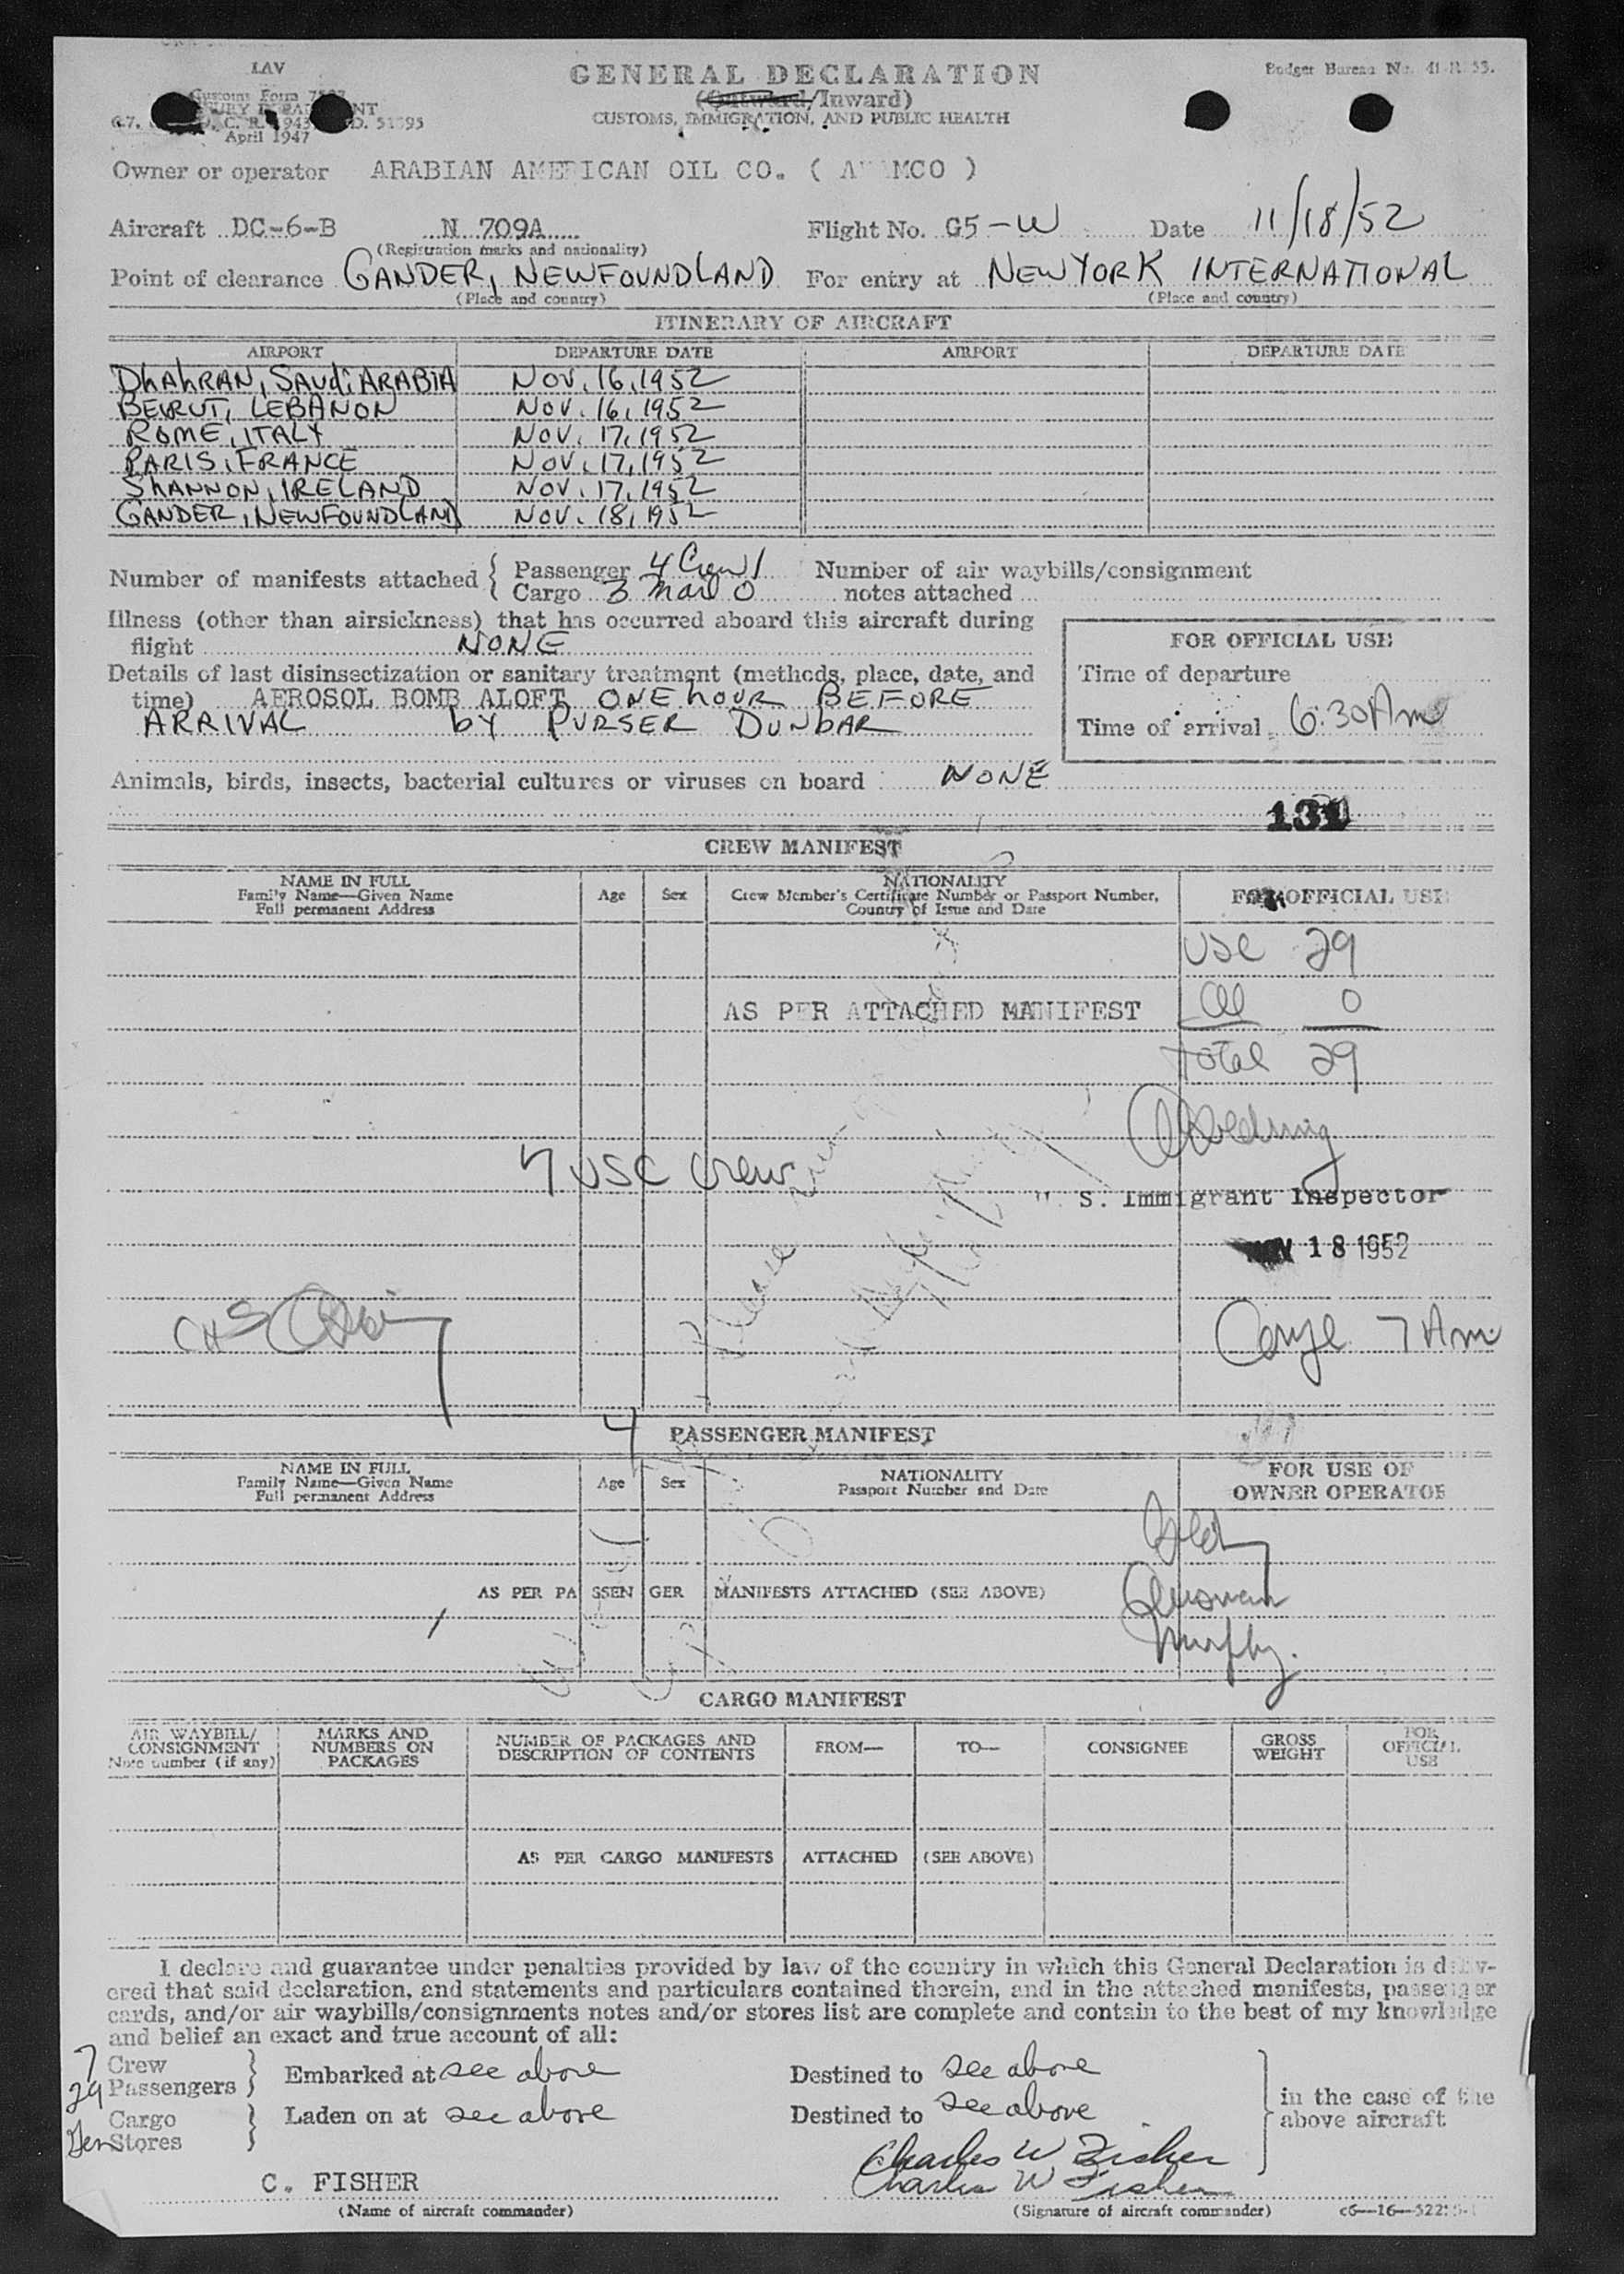 LAV
GENERAL DECLARATION
(Outward/Inward)
CUSTOMS, IMMIGRATION, AND PUBLIC HEALTH
Customs Form
April 1947
Owner or operator ARABIAN AMERICAN OIL CO. ( A MCO )
Aircraft DC-6-B N 709A Flight No. G5-W Date 11/18/52
(Registration marks and nationality)
Point of clearance GANDER, NEWFOUNDLAND For entry at NEW YORK INTERNATIONAL
(Place and country) (Place and country)
ITINERARY OF AIRCRAFT
AIRPORT DEPARTURE DATE AIRPORT DEPARTURE DATE
DhAhRAN, SAUdi ARABIA NOV. 16, 1952
BEIRUT, LEBANON NOV. 16, 1952
ROME, ITALY NOV. 17, 1952
PARIS, FRANCE NOV. 17, 1952
ShANNON, IRELAND NOV. 17, 1952
GANDER, NEWFOUNDLAND NOV. 18, 1952
Number of manifests attached { Passenger 4 Crew 1 Number of air waybills/consignment
Cargo 3 Mail 0 notes attached
Illness (other than airsickness) that has occurred aboard this aircraft during
flight NONE
Details of last disinsectization or sanitary treatment (methods, place, date, and
time) AEROSOL BOMB ALOFT ONE hOUR BEFORE
ARRIVAL by PURSER DUNbAR
FOR OFFICIAL USE
Time of departure
Time of arrival 6:30 Am
Animals, birds, insects, bacterial cultures or viruses on board NONE
131
CREW MANIFEST
NAME IN FULL
Family Name—Given Name
Full permanent Address
Age Sex
NATIONALITY
Crew Member's Certificate Number or Passport Number,
Country of Issue and Date
FOR OFFICIAL USE
USC 29
AS PER ATTACHED MANIFEST
0
Total 29
7 USC Crew
S. Immigrant Inspector
NOV 18 1952
7 Am
4
PASSENGER MANIFEST
NAME IN FULL
Family Name—Given Name
Full permanent Address
Age Sex
NATIONALITY
Passport Number and Date
FOR USE OF
OWNER OPERATOR
AS PER PASSENGER MANIFESTS ATTACHED (SEE ABOVE)
Murphy.
CARGO MANIFEST
AIR WAYBILL/
CONSIGNMENT
Note number (if any)
MARKS AND
NUMBERS ON
PACKAGES
NUMBER OF PACKAGES AND
DESCRIPTION OF CONTENTS
FROM— TO— CONSIGNEE
GROSS
WEIGHT
FOR
OFFICIAL
USE
AS PER CARGO MANIFESTS ATTACHED (SEE ABOVE)
I declare and guarantee under penalties provided by law of the country in which this General Declaration is deliv-
ered that said declaration, and statements and particulars contained therein, and in the attached manifests, passenger
cards, and/or air waybills/consignments notes and/or stores list are complete and contain to the best of my knowledge
and belief an exact and true account of all:
7 Crew
29 Passengers } Embarked at see above Destined to see above
Cargo
Stores } Laden on at see above Destined to see above
in the case of the
above aircraft
Charles W Fisher
C. FISHER Charles W Fisher
(Name of aircraft commander) (Signature of aircraft commander)